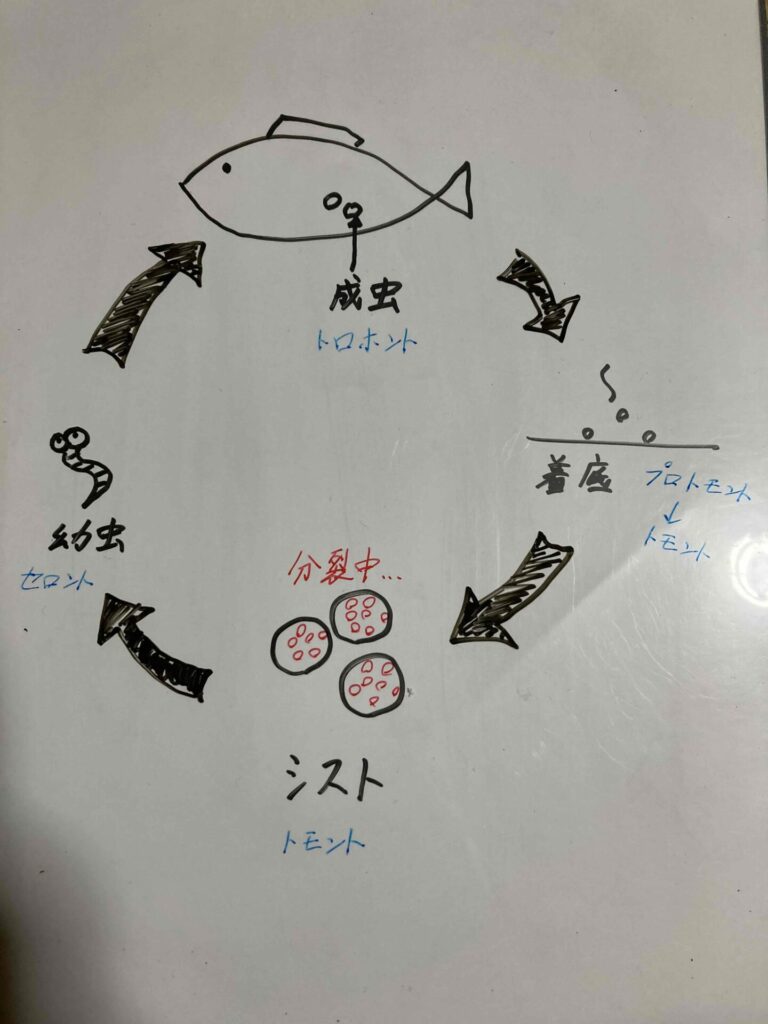 成虫
トロホント
着底
プロトモント
↓
トモント
分裂中...
シスト
トモント
幼虫
セロント